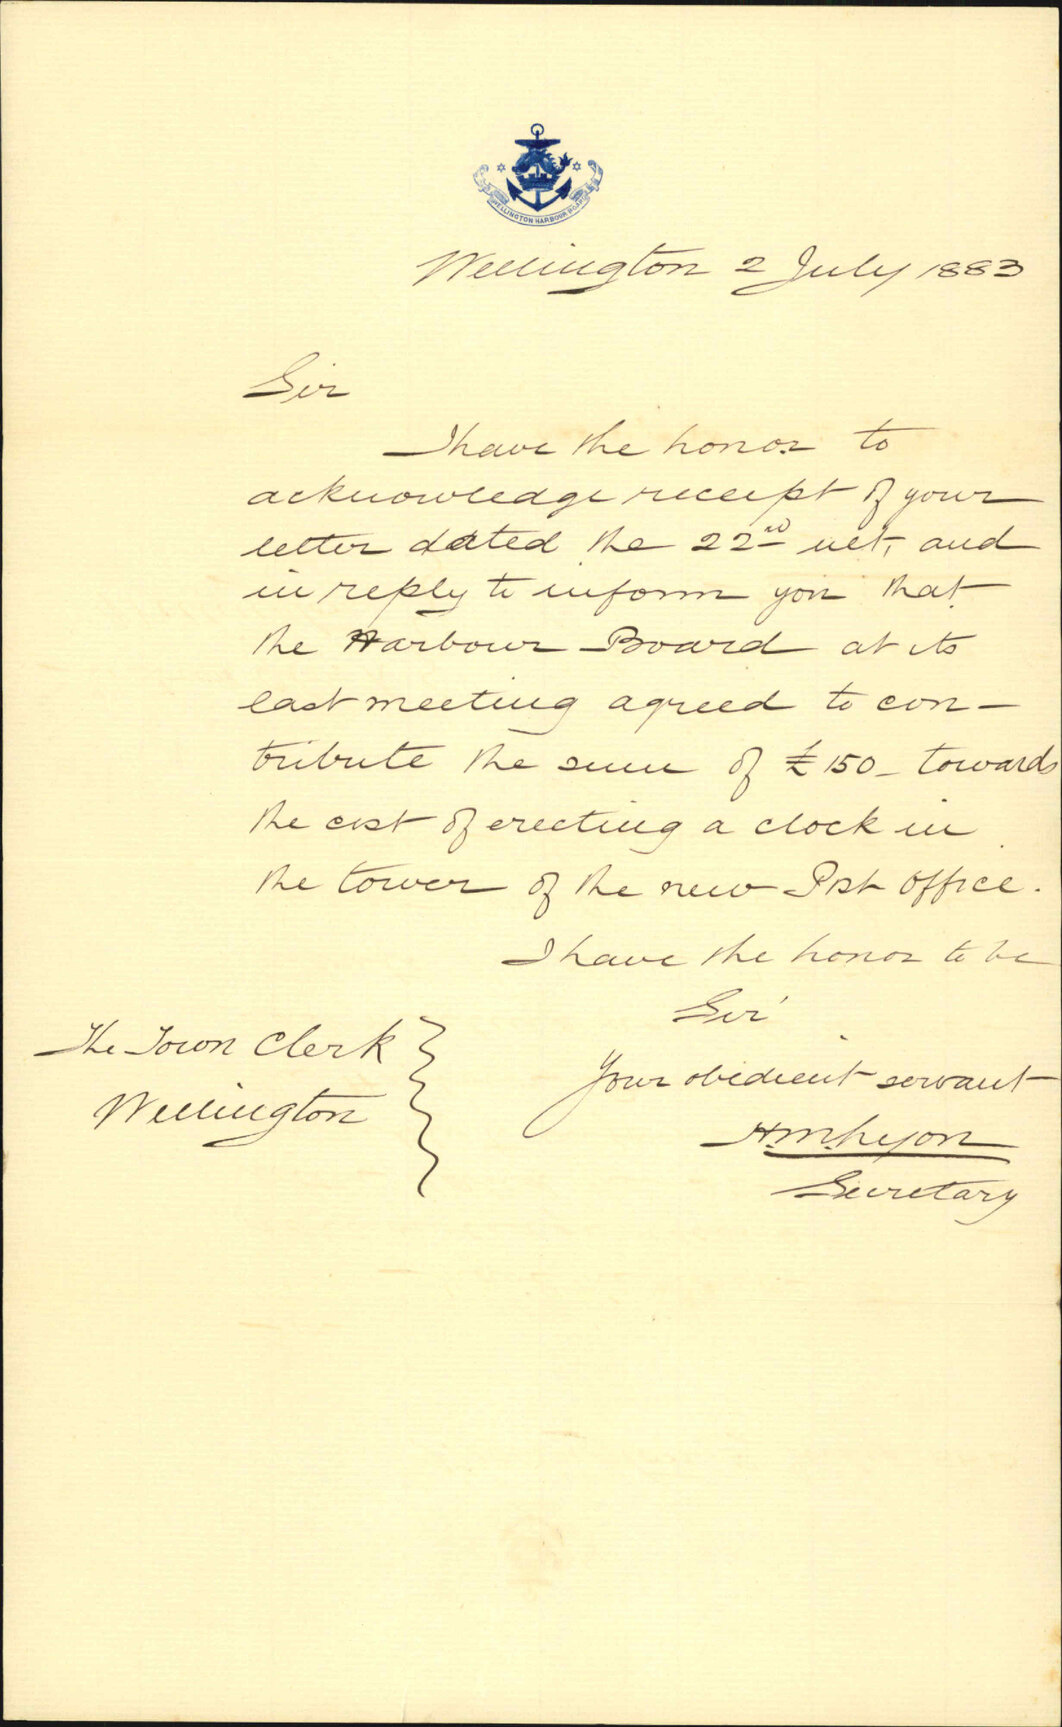 WELLINGTON HARBOUR BOARD
Wellington 2 July 1883
Sir
I have the honor to
acknowledge receipt of your
letter dated the 22nd ult, and
in reply to inform you that
the Harbour Board at its
last meeting agreed to con-
tribute the sum of £150 - towards
the cost of erecting a clock in
the tower of the new Post Office.
I have the honor to be
Sir
Your obedient servant
H.M. Lyon
Secretary
The Town Clerk
Wellington